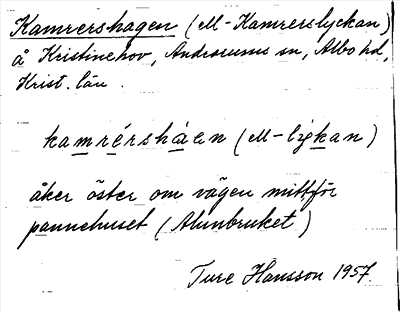 Kamrershagen (el - Kamrerslyckan)
å Kristinehov, Andrarums sn, Albo hd,
Krist. län.
kamrérshàen (el - lykan)
åker öster om vägen mittför
pannehuset (Alunbruket)
Ture Hansson 1957.